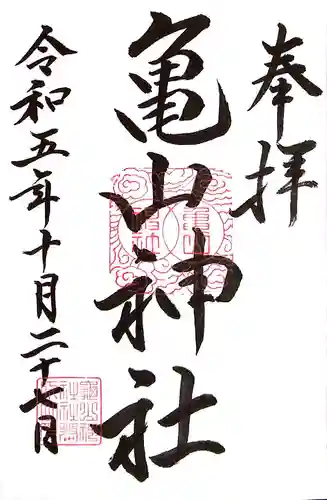 奉拝
亀山神社
令和五年十月二十七日